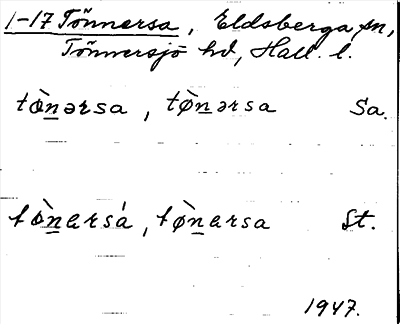 1-17 Tönnersa, Eldsberga sn,
Tönnersjö hd, Hall. l.
tø̀nərsa, tø̀nərsa Sa.
tø̀narsá, tø̀narsa St.
1947.